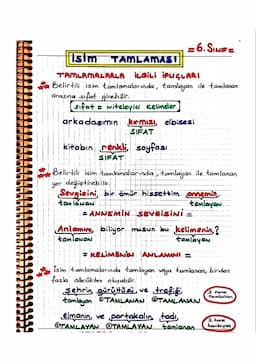 = 6.SINIF =
İSİM TAMLAMASI
TAMLAMALARLA İLGİLİ İPUÇLARI
Belirtili isim tamlamalarında, tamlayan ile tamlanan
arasına sıfat girebilir.
sıfat = niteleyici kelimeler
arkadaşımın kırmızı elbisesi
SIFAT
kitabın renkli sayfası
SIFAT
Belirtili isim tamlamalarında, tamlayan ile tamlanan
yer değiştirebilir.
Sevgisini, bir ömür hissettim annemin.
tamlanan tamlayan
= ANNEMİN SEVGİSİNİ =
Anlamını, biliyor musun bu kelimenin?
tamlanan tamlayan
= KELİMENİN ANLAMINI =
İsim tamlamalarında tamlayan veya tamlanan, birden
fazla sözcükten oluşabilir.
şehrin gürültüsü ve trafiği
tamlayan TAMLANAN TAMLANAN
elmanın ve portakalın tadı
TAMLAYAN TAMLAYAN tamlanan